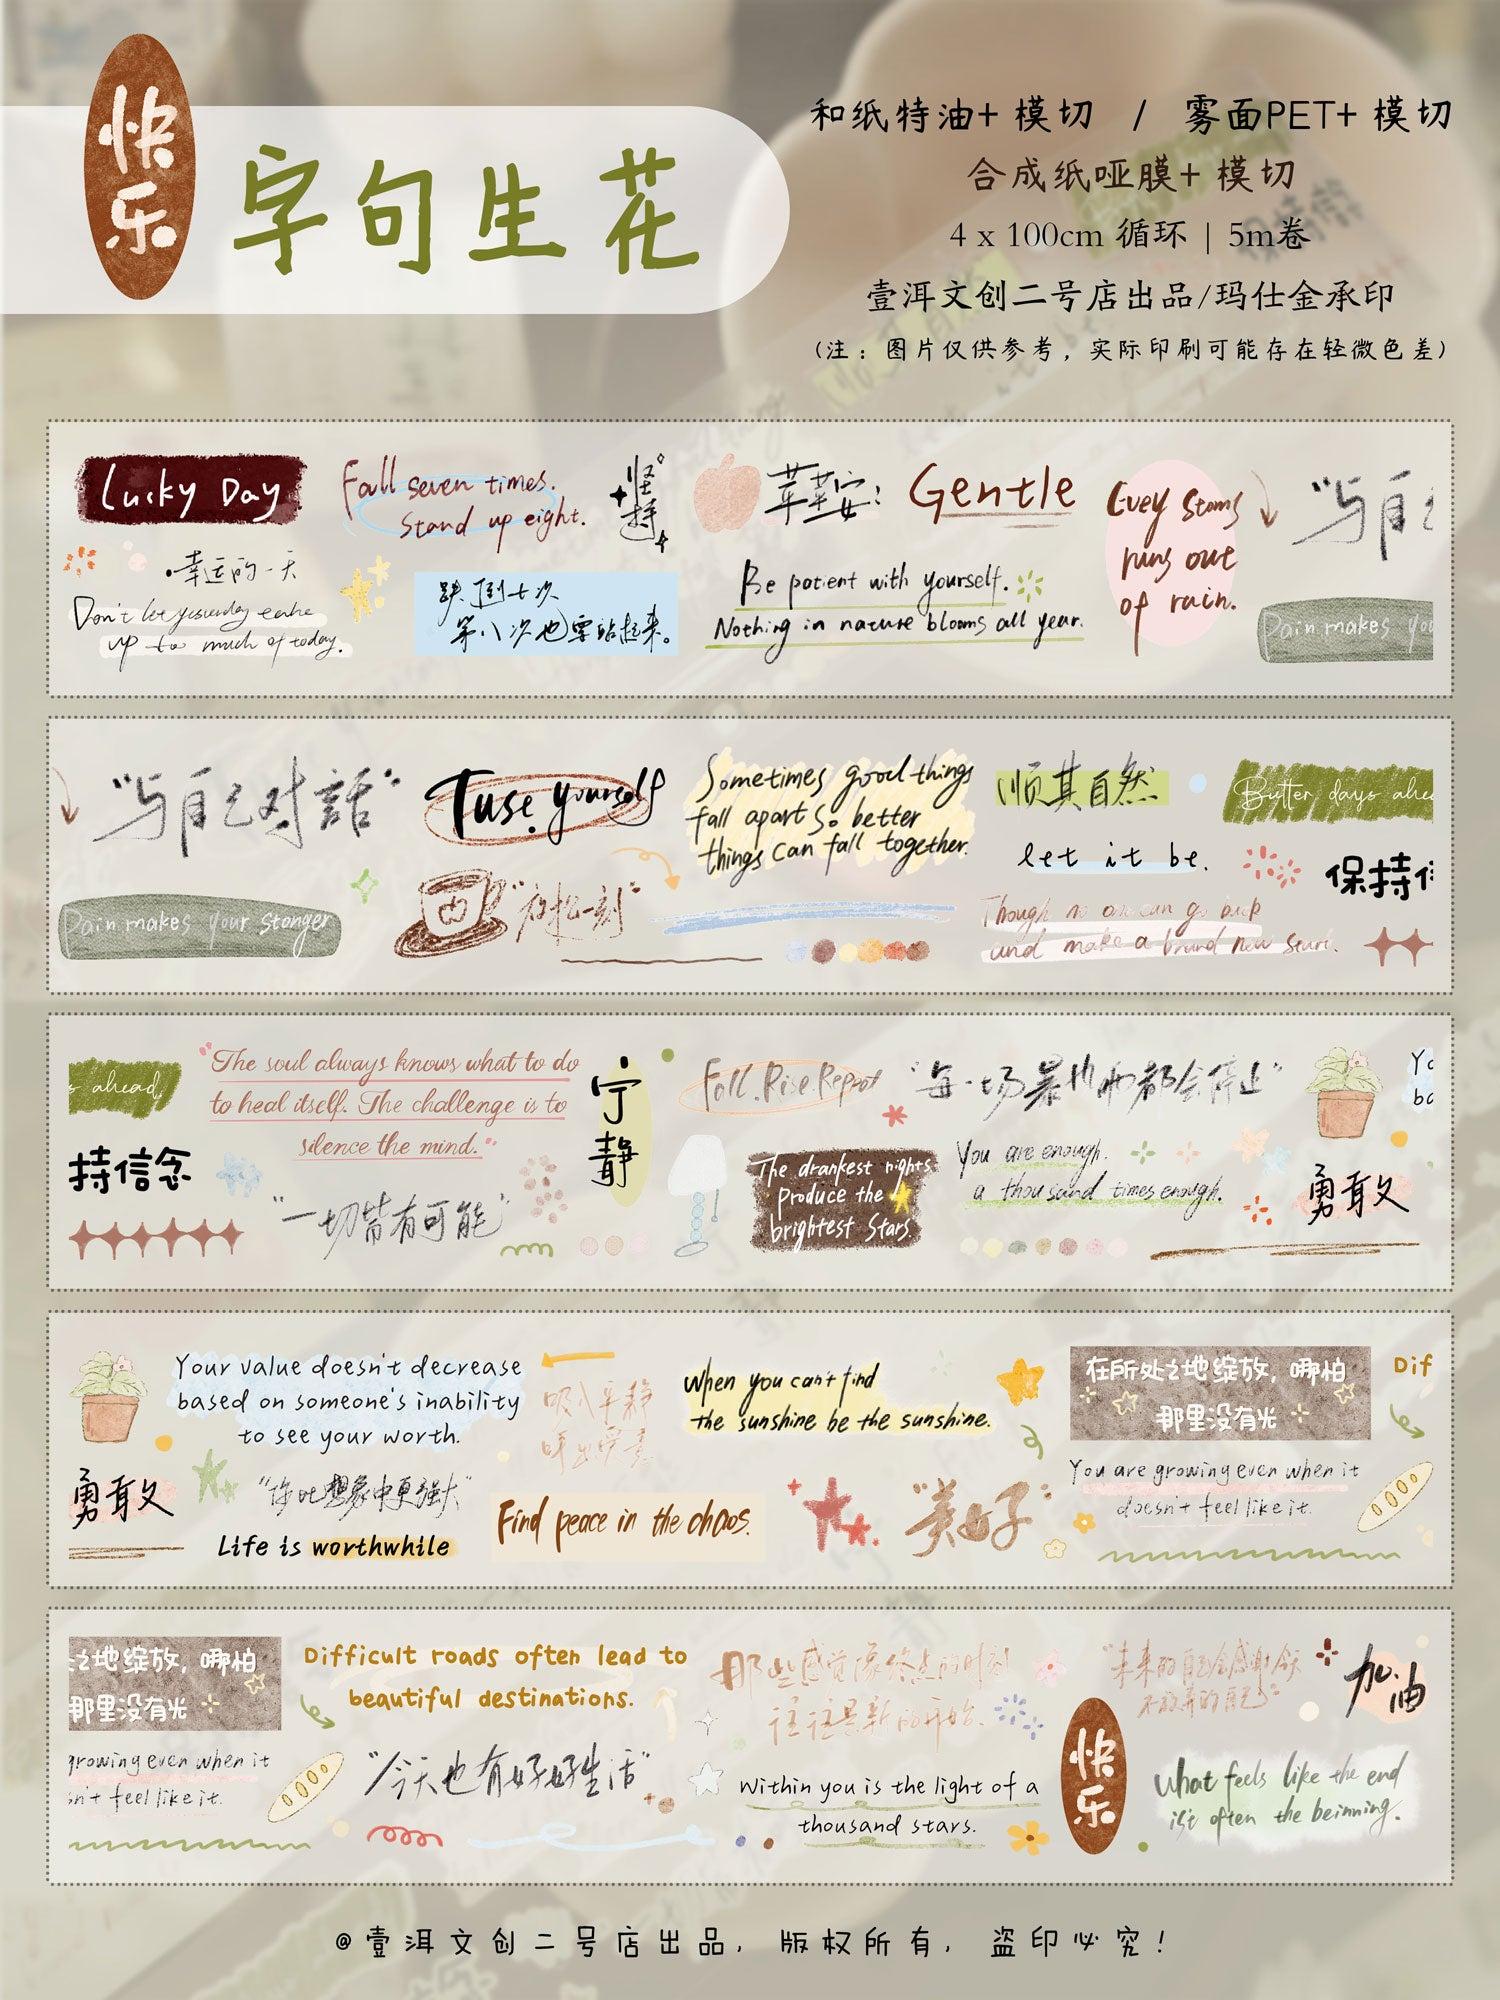 快乐
字句生花
和纸特油+ 模切 / 雾面PET+ 模切
合成纸哑膜+ 模切
4 x 100cm 循环 | 5m卷
壹洱文创二号店出品/玛仕金承印
(注：图片仅供参考，实际印刷可能存在轻微色差)
Lucky Day
幸运的一天
Don't let yesterday
up too much of today.
Fall seven times.
Stand up eight.
坚持
跌倒七次
第八次也要站起来。
苹苹安:
Gentle
Be patient with yourself.
Nothing in nature blooms all year.
Evey Stoms
runs out
of rain.
"与自己
Pain makes you
"与自己对話"
Pain makes your Stonger
Tuse yourself
"放松一刻"
Sometimes good things
fall apart So better
things can fall together.
顺其自然
let it be.
Though no one can go back
and make a brand new start.
Better days ahea
保持信
s ahead,
持信念
"The soul always knows what to do
to heal itself. The challenge is to
silence the mind."
"一切皆有可能"
宁静
Fall.Rise.Repeat
The drankest nights
Produce the
brightest Stars.
"每一场暴风雨都会停止"
You are enough.
a thousand times enough.
勇敢
Yo
ba
勇敢
Your value doesn't decrease
based on someone's inability
to see your worth.
"你比想象中更强大"
Life is worthwhile
吸入平静
呼出焦虑
Find peace in the chaos.
When you can't find
the sunshine be the sunshine.
"美好"
在所处之地绽放，哪怕
那里没有光
You are growing even when it
doesn't feel like it.
Dif
之地绽放，哪怕
那里没有光
growing even when it
sn't feel like it.
Difficult roads often lead to
beautiful destinations.
"今天也有好好生活"
那些感觉像终点的时刻
往往是新的开始.
Within you is the light of a
thousand stars.
快乐
"未来的自己会感谢今天
不放弃的自己"
加油
What feels like the end
is't often the beinning.
@壹洱文创二号店出品，版权所有，盗印必究!